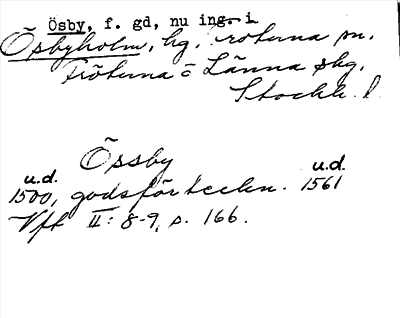 Ösby, f. gd, nu ing. i
Ösbyholm, hg, roterna sn.
Fröterna o Länna skg,
Stockh. l.
Össby
u.d. u.d.
1500, godsförteckn. 1561
Vft II: 8-9, s. 166.